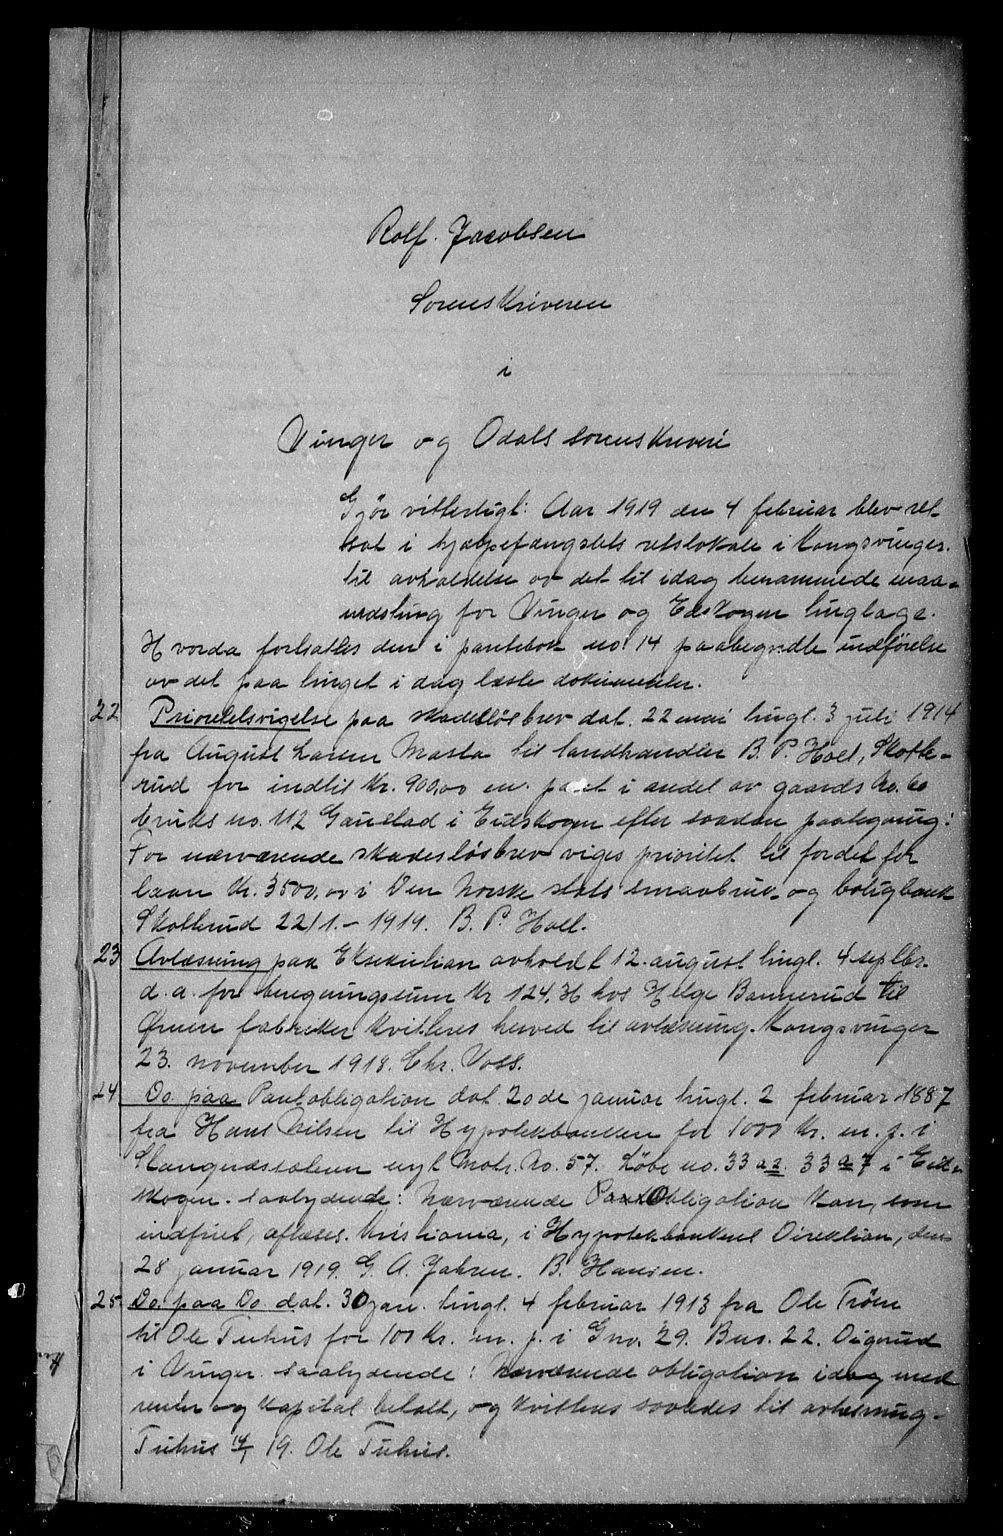 Rolf. Jacobsen
Sorenskriveren
i
Vinger og Odals sorenskriveri
Gjör vitterligt: Aar 1919 den 4 februar blev ret
sat i hjælpefængslets retslokale i Kongsvinger.
til avholdelse av det til idag berammede maa-
nedsting for Vinger og Eidskogen tinglage.
Hvorda fortsattes den i pantebok no. 14 paabegyndte indförelse
av det paa tinget i dag læste dokumenter.
22 Prioritetsvigelse paa skadeslösbrev dat. 22 mai tingl. 3 juli 1914
fra August Larsen Masta til landhandler B. P. Holl, Skotte-
rud for indtil Kr. 900,00 m. pant i andel av gaards No. 60
bruks no. 112 Gaustad i Eidskogen efter saadan paategning:
For nærværende skadeslösbrev viges prioritet til fordel for
laan Kr. 3500,00 i Den Norske stats smaabruk- og boligbank
Skotterud 22/1.- 1919. B. P. Holl.
23 Avlæsning paa Eksekution avholdt 12. august tingl. 4 septbr.
d. a. for beregningssum Kr 124,74 hos Helge Bannerud til
Gruen fabrikker kvitteres herved til avlæsning. Kongsvinger
23. november 1918. Chr. Voss.
24 Do. paa Pantobligation dat. 20de januar tingl. 2 februar 1887
fra Hans Nilsen til Hypotekbanken for 1000 Kr. m. p. i
Slangnæssæteren nyt Matr. No. 57. Löbe no. 33 a 2. 33 a 7 i Eid-
skogen. saalydende: Nærværende PantObligation kan, som
indfriet, aflæses. Kristiania, i Hypotekbankens Direktion, den
28 januar 1919. G. A. Jahren. B. Hansen.
25 Do. paa Do. dat. 30 jan. tingl. 4 februar 1913 fra Ole Tröen
til Ole Tuhus for 100 Kr. m. p. i Gno. 29. Bno. 22. Digerud
i Vinger. saalydende: Nærværende obligation idag med
renter og kapital betalt, og kvitteres saaledes til avlæsning.
Tuhus 14/1 19. Ole Tuhus.